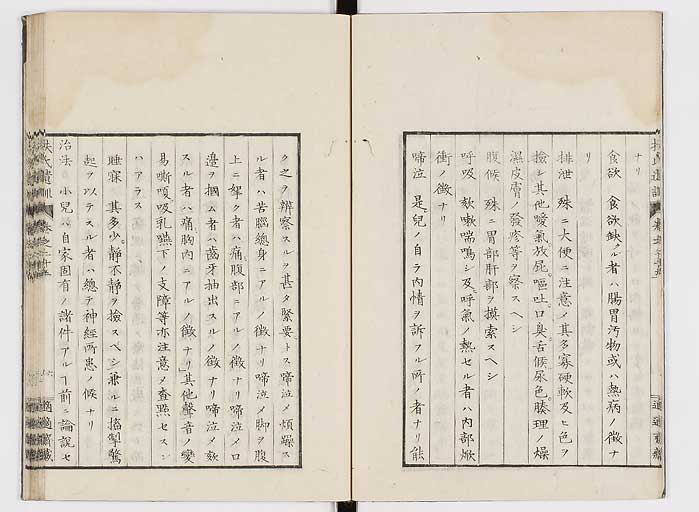 ナリ
食欲 食欲缺ル者ハ腸胃汚物或ハ熱病ノ徴ナ
リ
排泄 殊ニ大便ニ注意ノ其多寡硬軟及ヒ色ヲ
撿シ其他噯氣放屁。嘔吐。口臭。舌候尿色。腠理ノ燥
濕皮膚ノ發疹等ヲ察スヘシ
腹候 殊ニ胃部肝部ヲ摸索スヘシ
呼吸 欬嗽喘鳴シ及呼氣ノ熱セル者ハ内部焮
衝ノ徴ナリ
啼泣 是。兒ノ自ラ内情ヲ訴フル所ノ者ナリ能
ク之ヲ辨察スルヲ甚タ緊要トス啼泣〆煩躁ス
ル者ハ苦腦總身ニアルノ徴ナリ啼泣〆脚ヲ腹
上ニ牽ク者ハ痛腹部ニアルノ徴ナリ啼泣〆口
邊ヲ摑ム者ハ齒牙抽出スルノ徴ナリ啼泣〆欬
スル者ハ痛胸内ニアルノ徴ナリ其他聲音ノ變
易嘶嗄吸乳嚥下ノ支障等亦注意〆査點セスン
ハアラス
睡寐 其多少。靜不靜ヲ撿スヘシ兼ルニ搐掣驚
起ヲ以テスル者ハ總テ神經所患ノ候ナリ
治法 小兒ハ自家固有ノ諸件アルヿ前ニ論説セ
扶氏遺訓